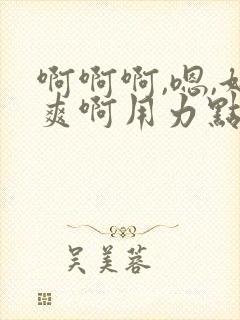 啊啊啊,嗯,
爽啊用力點
吴美蓉